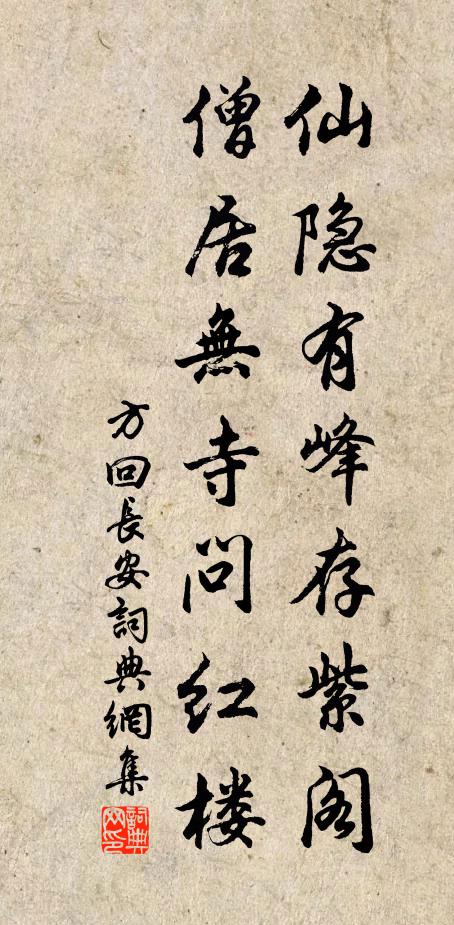 仙隐有峰存紫阁
僧居無寺问红楼
方回長安詞典網集
詞典网印